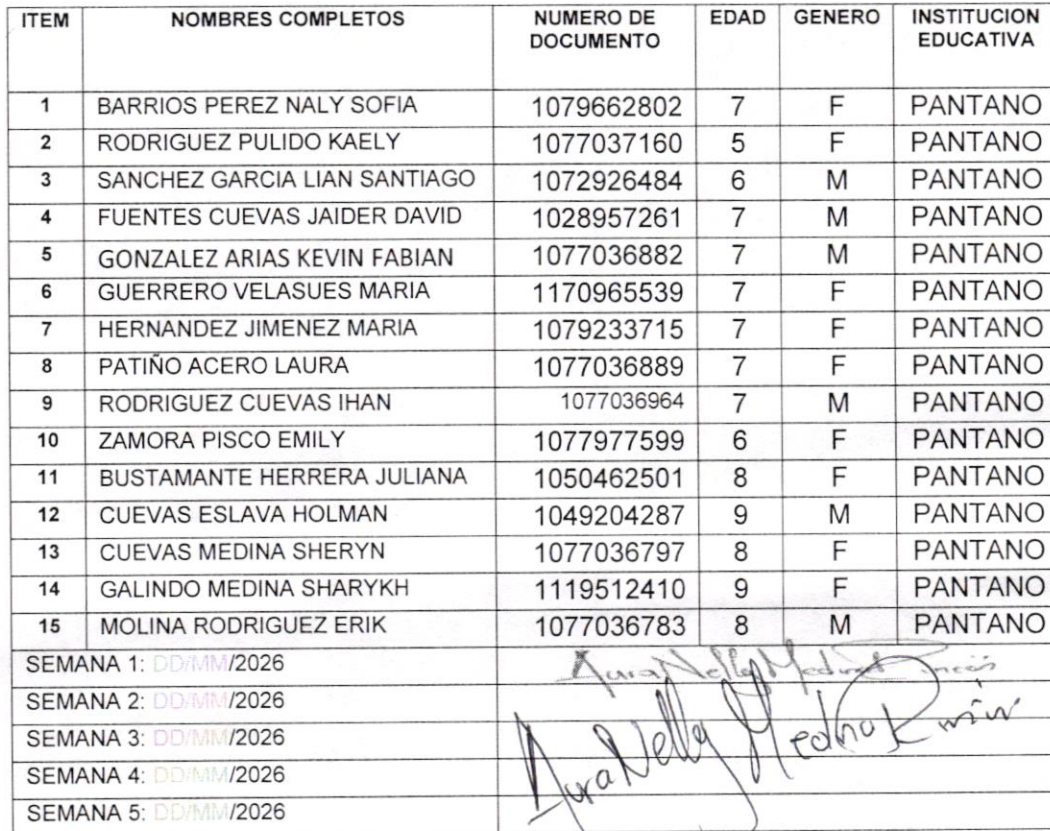 ITEM NOMBRES COMPLETOS NUMERO DE DOCUMENTO EDAD GENERO INSTITUCION EDUCATIVA
1 BARRIOS PEREZ NALY SOFIA 1079662802 7 F PANTANO
2 RODRIGUEZ PULIDO KAELY 1077037160 5 F PANTANO
3 SANCHEZ GARCIA LIAN SANTIAGO 1072926484 6 M PANTANO
4 FUENTES CUEVAS JAIDER DAVID 1028957261 7 M PANTANO
5 GONZALEZ ARIAS KEVIN FABIAN 1077036882 7 M PANTANO
6 GUERRERO VELASUES MARIA 1170965539 7 F PANTANO
7 HERNANDEZ JIMENEZ MARIA 1079233715 7 F PANTANO
8 PATIÑO ACERO LAURA 1077036889 7 F PANTANO
9 RODRIGUEZ CUEVAS IHAN 1077036964 7 M PANTANO
10 ZAMORA PISCO EMILY 1077977599 6 F PANTANO
11 BUSTAMANTE HERRERA JULIANA 1050462501 8 F PANTANO
12 CUEVAS ESLAVA HOLMAN 1049204287 9 M PANTANO
13 CUEVAS MEDINA SHERYN 1077036797 8 F PANTANO
14 GALINDO MEDINA SHARYKH 1119512410 9 F PANTANO
15 MOLINA RODRIGUEZ ERIK 1077036783 8 M PANTANO
SEMANA 1: DD/MM/2026 Aura Nelly Medina Rincón
SEMANA 2: DD/MM/2026
SEMANA 3: DD/MM/2026 Aura Nelly Medina Rincón
SEMANA 4: DD/MM/2026
SEMANA 5: DD/MM/2026